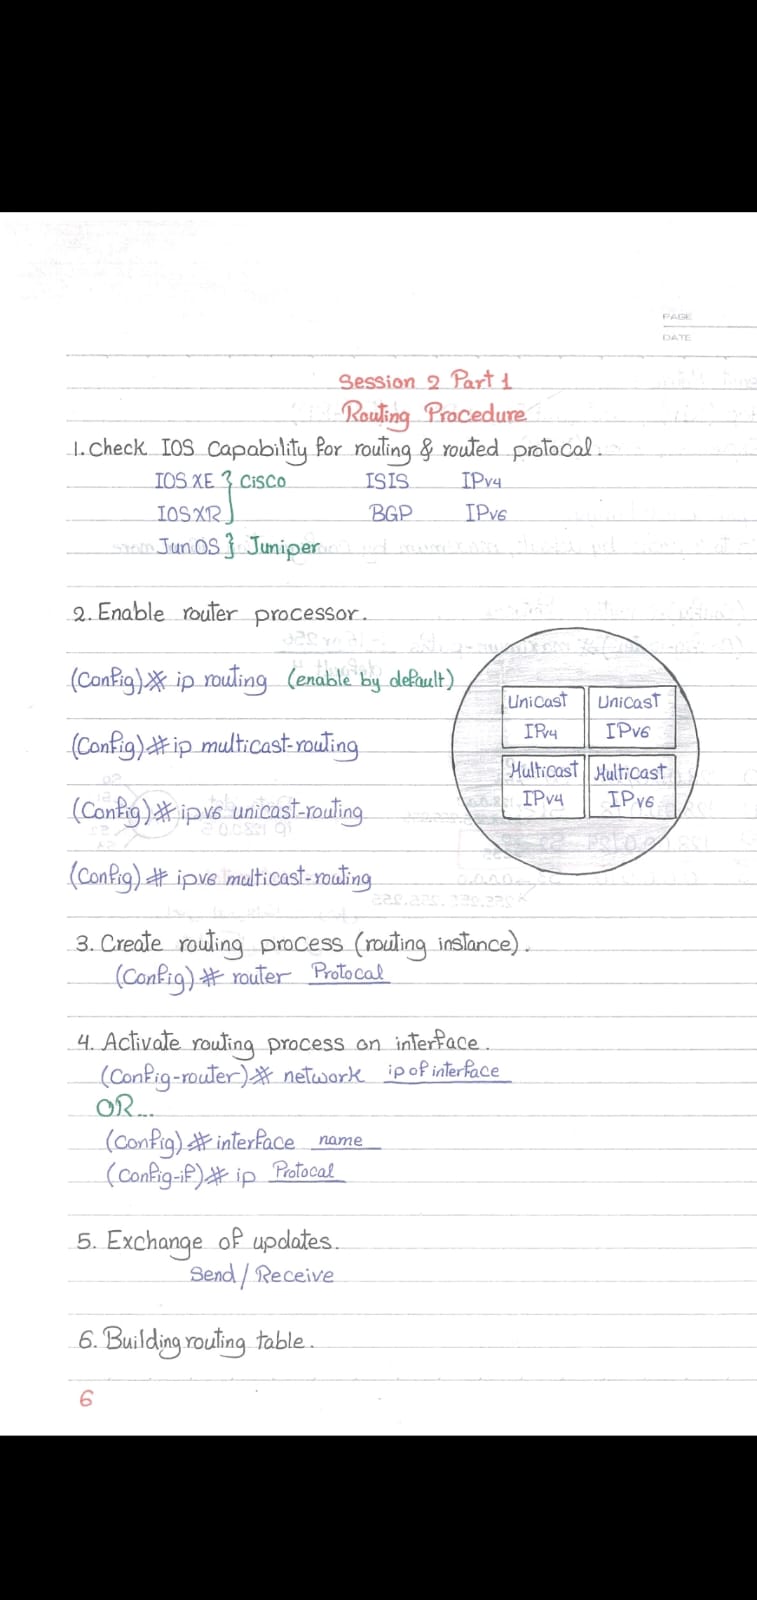 PAGE
DATE
Session 2 Part 1
Routing Procedure
1. Check IOS Capability for routing & routed protocal.
IOS XE } Cisco ISIS IPv4
IOS XR BGP IPv6
Jun OS } Juniper
2. Enable router processor.
(Config)# ip routing (enable by default)
(Config)# ip multicast-routing
(Config)# ipv6 unicast-routing
(Config)# ipv6 multicast-routing
Unicast IPv4
Unicast IPv6
Multicast IPv4
Multicast IPv6
3. Create routing process (routing instance).
(Config)# router Protocal
4. Activate routing process on interface.
(Config-router)# network ip of interface
OR...
(Config)# interface name
(Config-if)# ip Protocal
5. Exchange of updates.
Send / Receive
6. Building routing table.
6